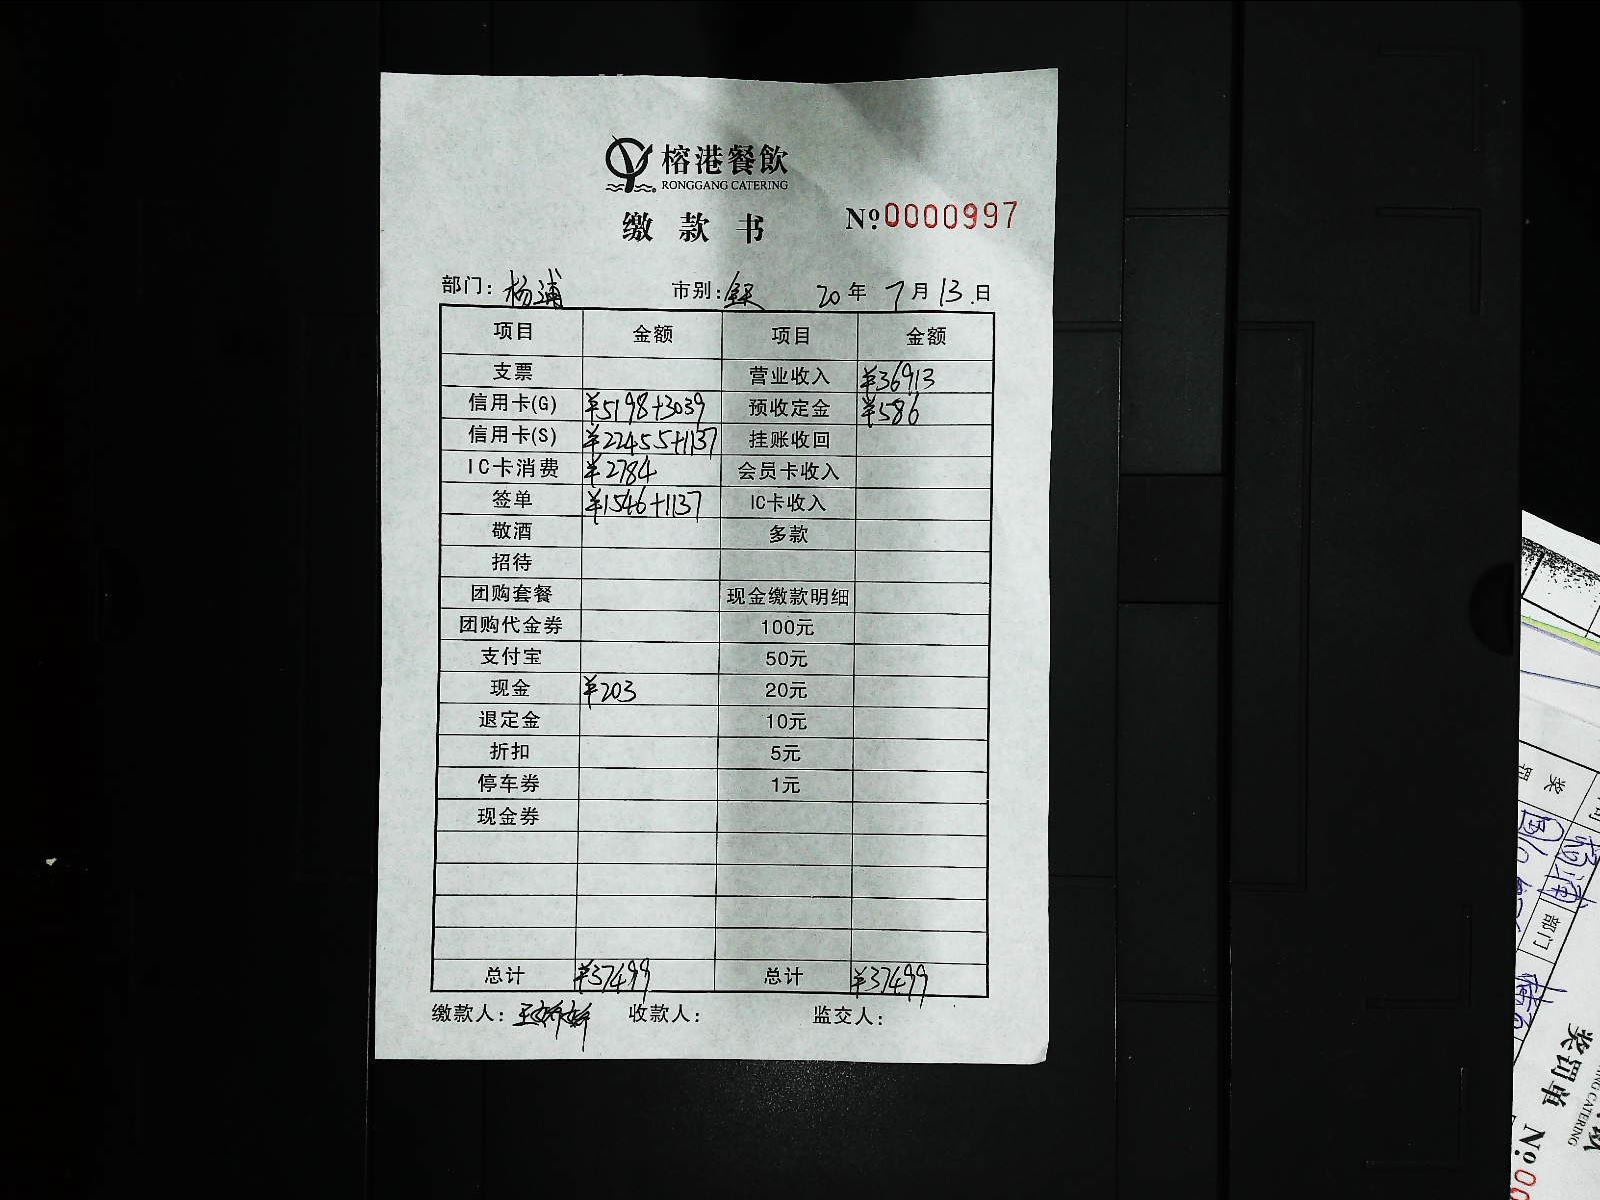 榕港餐飲
RONGGANG CATERING
缴款书 №0000997
部门: 杨浦 市别: 全天 20年 7月 13日
项目 金额 项目 金额
支票 营业收入 ¥36913
信用卡(G) ¥5198+3039 预收定金 ¥586
信用卡(S) ¥22455+1137 挂账收回
IC卡消费 ¥2784 会员卡收入
签单 ¥1546+1137 IC卡收入
敬酒 多款
招待
团购套餐 现金缴款明细
团购代金券 100元
支付宝 50元
现金 ¥203 20元
退定金 10元
折扣 5元
停车券 1元
现金券
总计 ¥37499 总计 ¥37499
缴款人: 王娇娇 收款人: 监交人:
奖
杨浦
部门
CATERING
奖罚单
№0